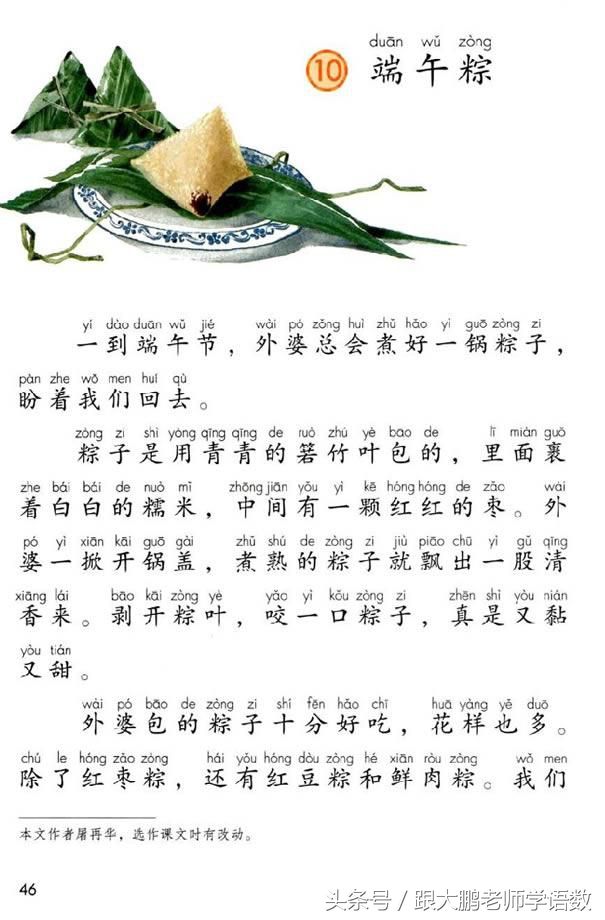 duān wǔ zòng
10 端午粽
yí dào duān wǔ jié wài pó zǒng huì zhǔ hǎo yì guō zòng zi
一到端午节，外婆总会煮好一锅粽子，
pàn zhe wǒ men huí qù
盼着我们回去。
zòng zi shì yòng qīng qīng de ruò zhú yè bāo de lǐ miàn guǒ
粽子是用青青的箬竹叶包的，里面裹
zhe bái bái de nuò mǐ zhōng jiān yǒu yì kē hóng hóng de zǎo wài
着白白的糯米，中间有一颗红红的枣。外
pó yì xiān kāi guō gài zhǔ shú de zòng zi jiù piāo chū yì gǔ qīng
婆一掀开锅盖，煮熟的粽子就飘出一股清
xiāng lái bāo kāi zòng yè yǎo yì kǒu zòng zi zhēn shì yòu nián
香来。剥开粽叶，咬一口粽子，真是又黏
yòu tián
又甜。
wài pó bāo de zòng zi shí fēn hǎo chī huā yàng yě duō
外婆包的粽子十分好吃，花样也多。
chú le hóng zǎo zòng hái yǒu hóng dòu zòng hé xiān ròu zòng wǒ men
除了红枣粽，还有红豆粽和鲜肉粽。我们
本文作者屠再华，选作课文时有改动。
46
头条号 / 跟大鹏老师学语数